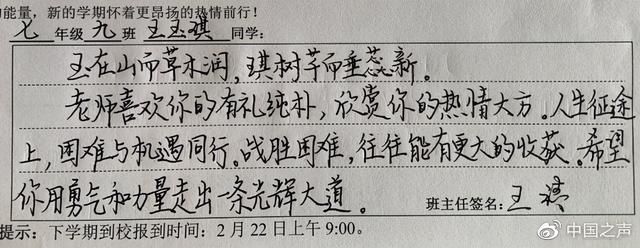 能量，新的学期怀着更昂扬的热情前行！
七 年级 九 班 王玉琪 同学：
玉在山而草木润，琪树芊而垂蕊新。
老师喜欢你的有礼纯朴，欣赏你的热情大方。人生征途
上，困难与机遇同行。战胜困难，往往能有更大的收获。希望
你用勇气和力量走出一条光辉大道。
班主任签名：王
提示：下学期到校报到时间：2 月 22 日上午 9:00。
@中国之声